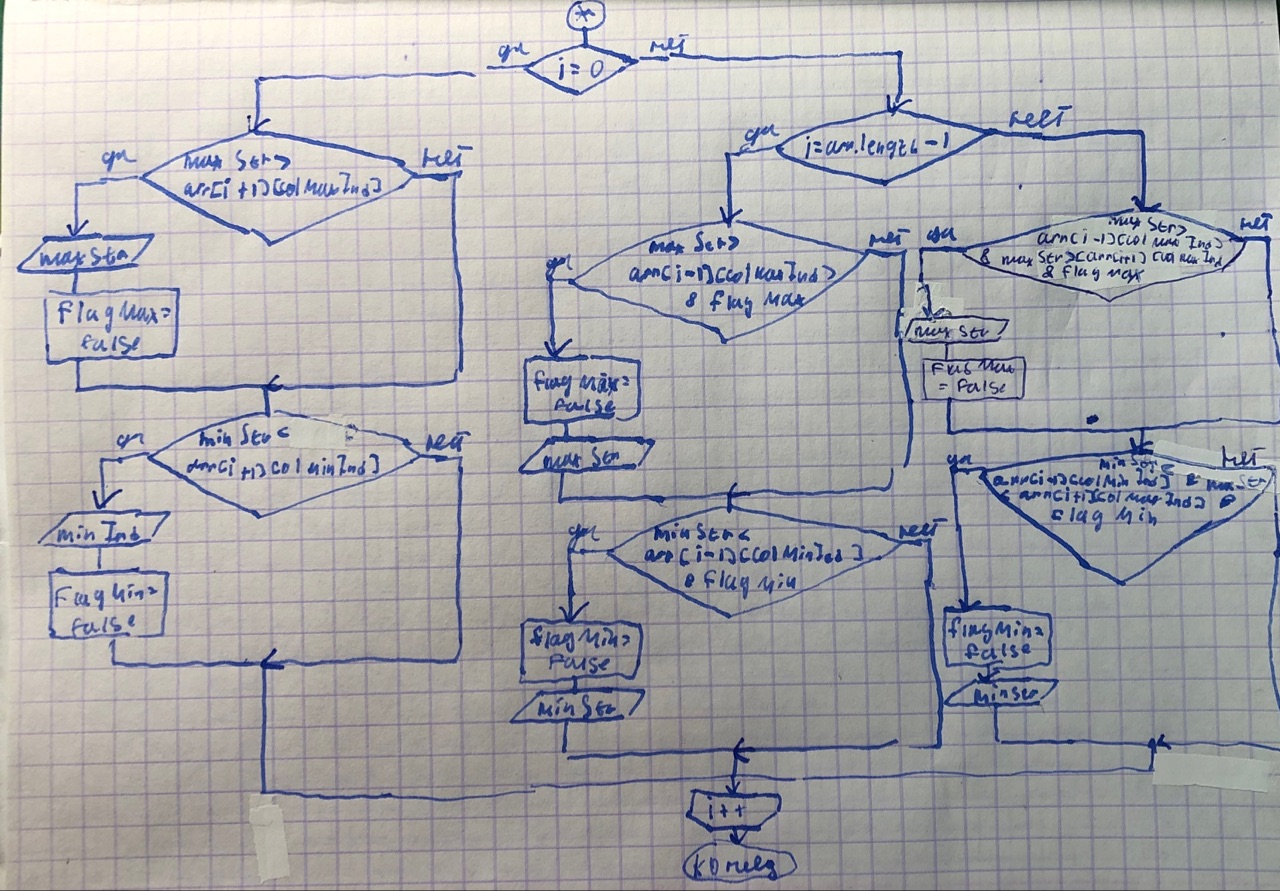 *
да
i = 0
нет
да
max Str >
arr[i+1][colMaxInd]
нет
max Str
FlagMax =
False
да
min Str <
arr[i+1]colMinInd]
нет
min Ind
FlagMin =
False
да
i = arr.length - 1
нет
да
max Str >
arr[i-1][colMaxInd]
& flag Max
нет
FlagMax =
False
max Str
да
min Str <
arr[i-1][colMinInd]
& flagMin
нет
flagMin =
False
min Str
да
max Str >
arr[i-1][col Max Ind]
& max Str > [arr[i+1] Col Max Ind
& flag Max
нет
max Str
Flag Max
= False
да
min Str <
arr[i-1][colMin Ind] &
< arr[i+1][colMax Ind]
Flag Min
нет
flagMin =
False
min Str
i++
конец